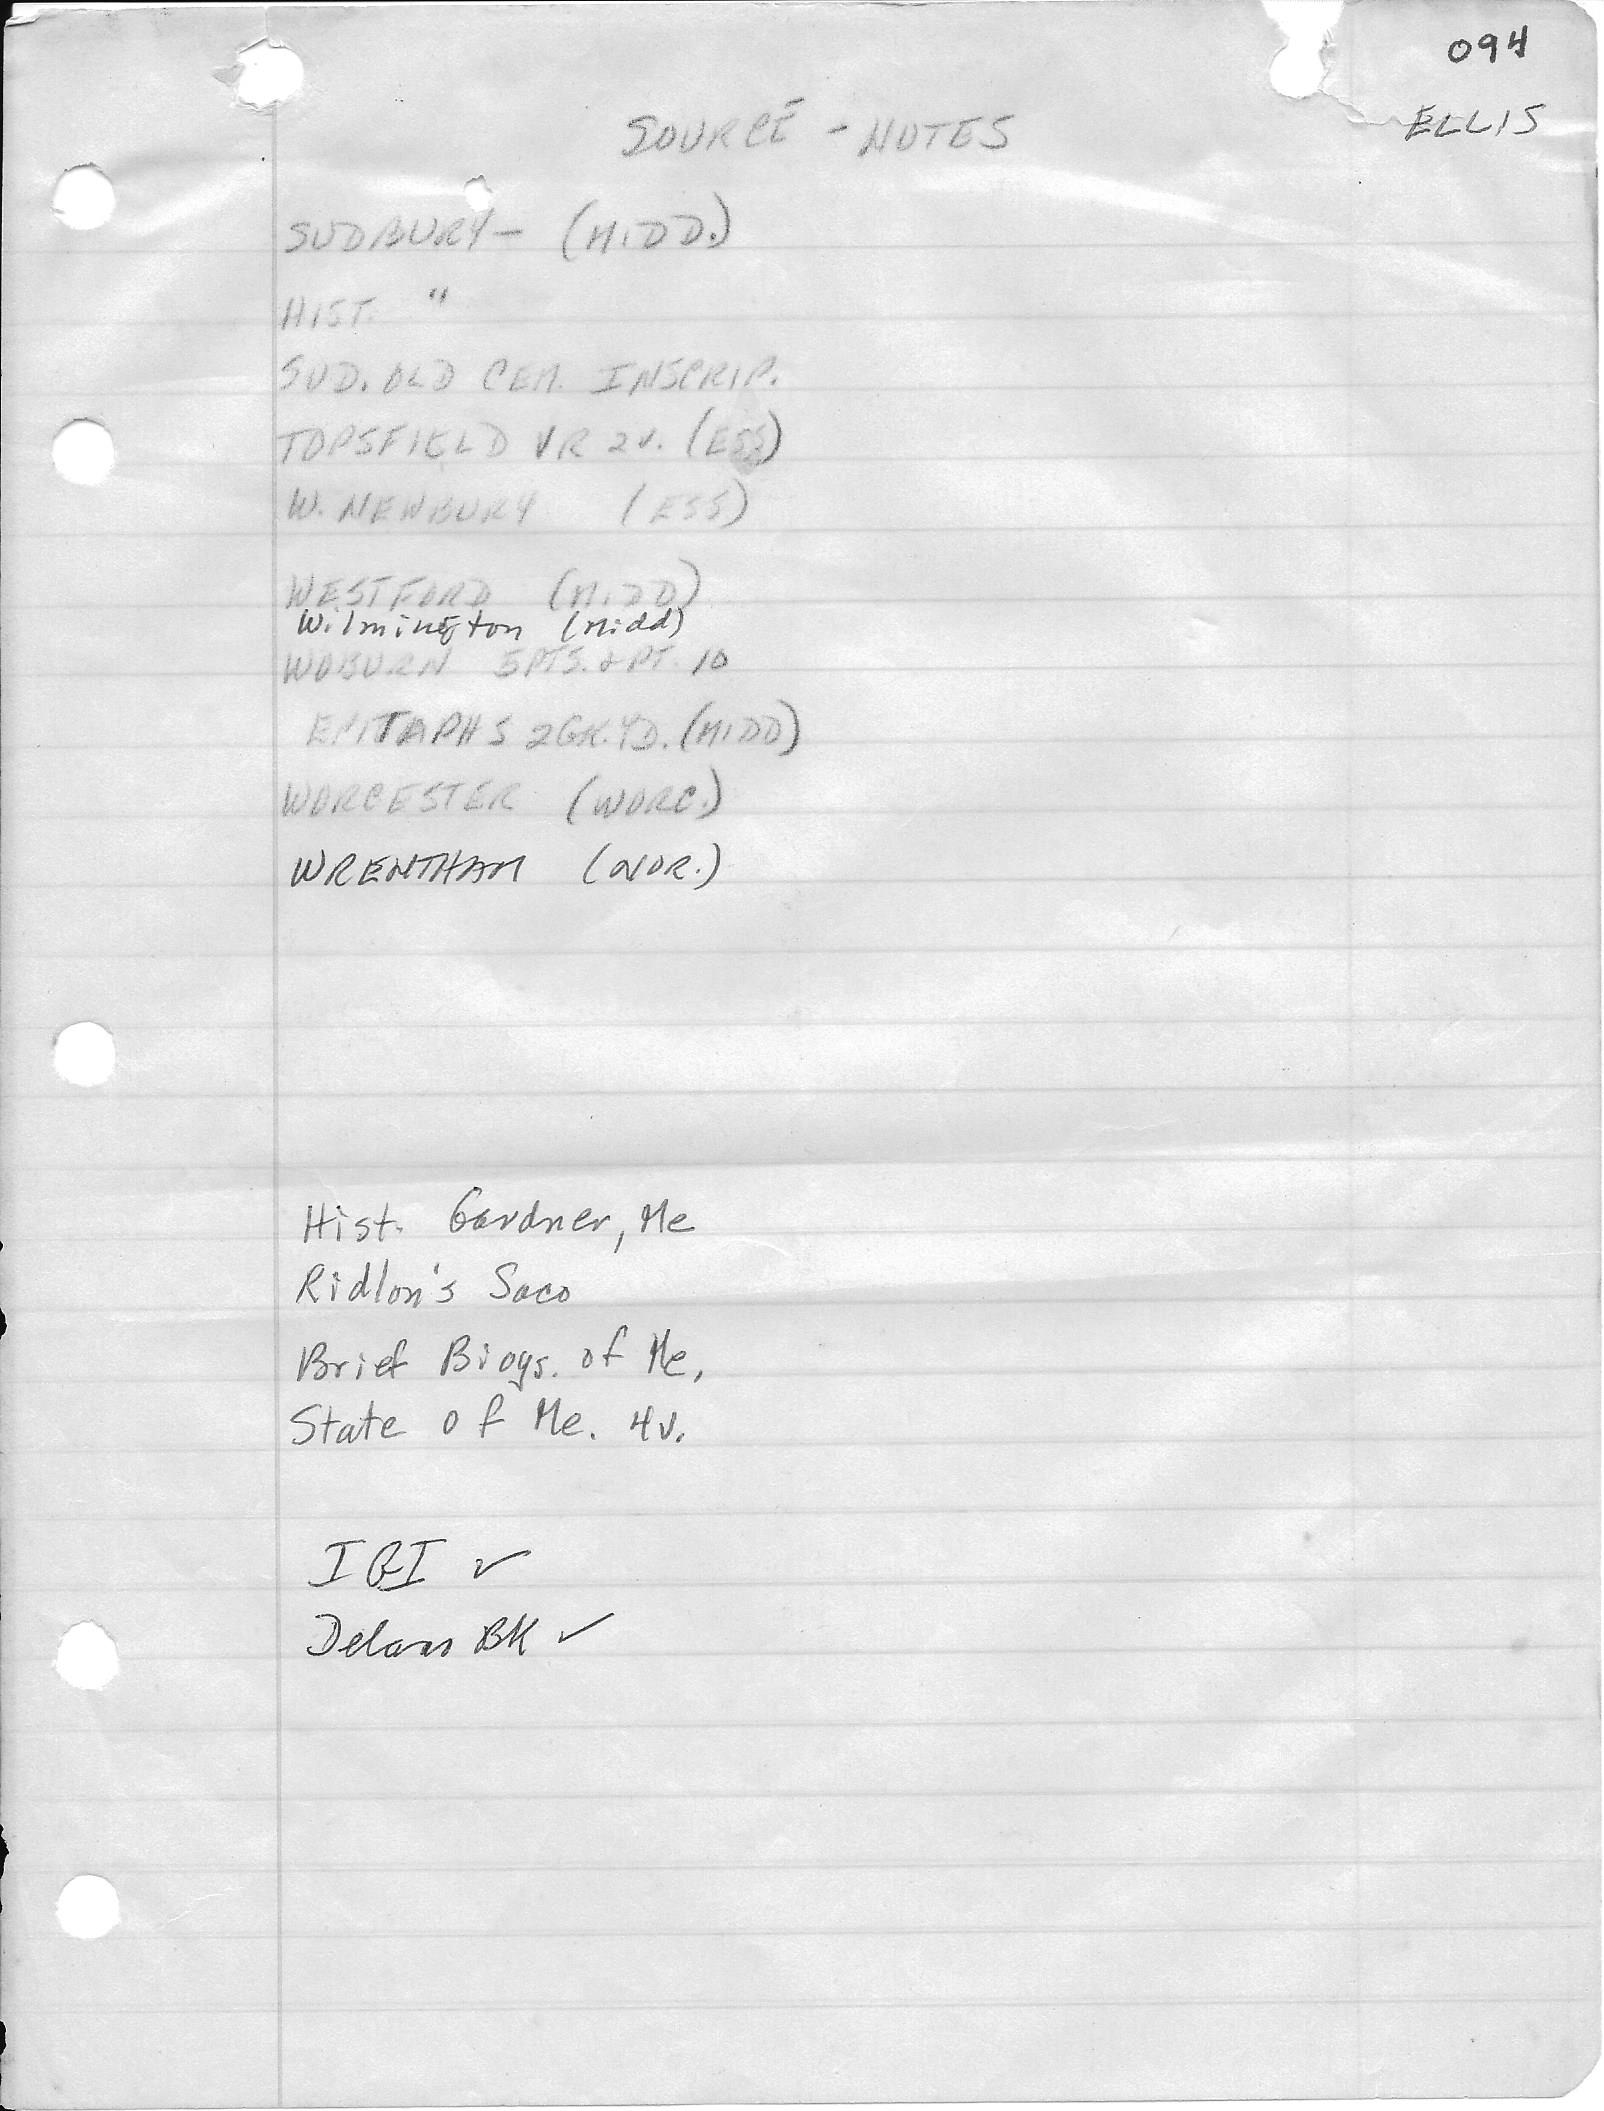 094
ELLIS
SOURCE - NOTES
SUDBURY - (MIDD.)
HIST. "
SUD. OLD CEM. INSCRIP.
TOPSFIELD VR 2v. (ESS)
W. NEWBURY (ESS)
WESTFORD (MIDD)
Wilmington (Midd)
WOBURN 5 PTS. & PT. 10
EPITAPHS 2 GR. YD. (MIDD)
WORCESTER (WORC.)
WRENTHAM (NOR.)
Hist. Gardner, Me
Ridlon's Saco
Brief Biogs. of Me.
State of Me. 4v.
IGI ✓
Delano BK ✓